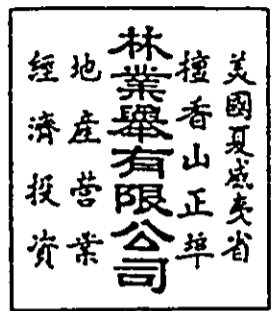 美國夏威夷省
檀香山正埠
林業舉有限公司
地產營業
經濟投資